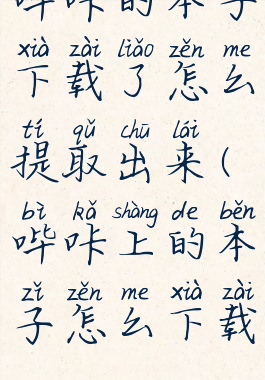 哔咔的本子
xià zài liǎo zěn me
下载了怎么
tí qǔ chū lái
提取出来(
bì kǎ shàng de běn
哔咔上的本
zǐ zěn me xià zài
子怎么下载